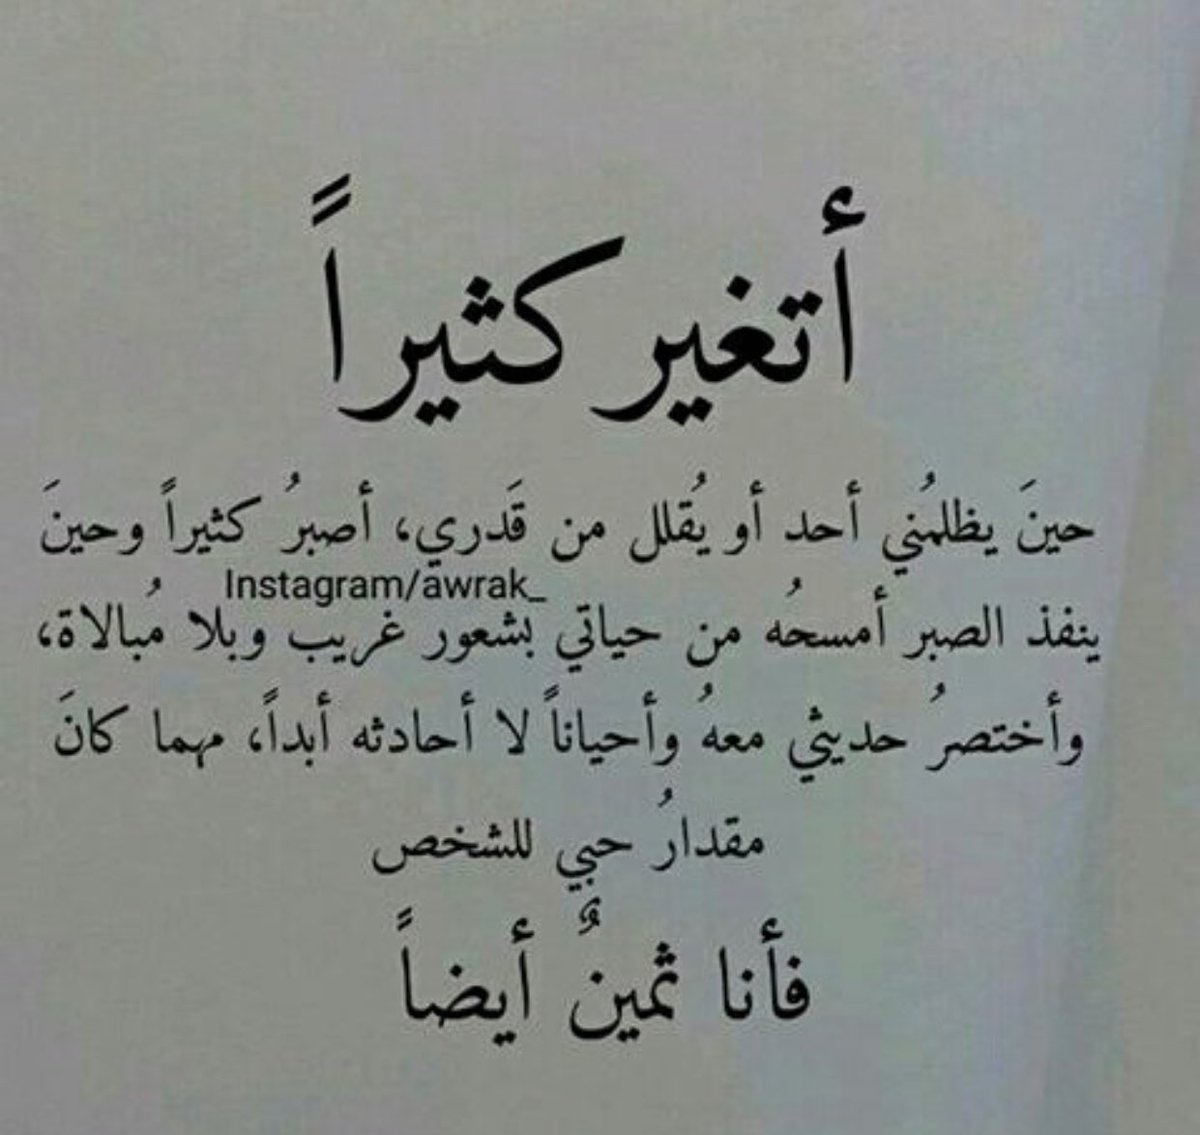 أتغير كثيراً
حينَ يظلمُني أحد أو يُقلل من قَدري، أصبرُ كثيراً وحينَ
Instagram/awrak_
ينفذ الصبر أمسحُه من حياتي بشعور غريب وبلا مُبالاة،
وأختصرُ حديثي معهُ وأحياناً لا أحادثه أبداً، مهما كانَ
مقدارُ حبي للشخص
فأنا ثمينٌ أيضاً